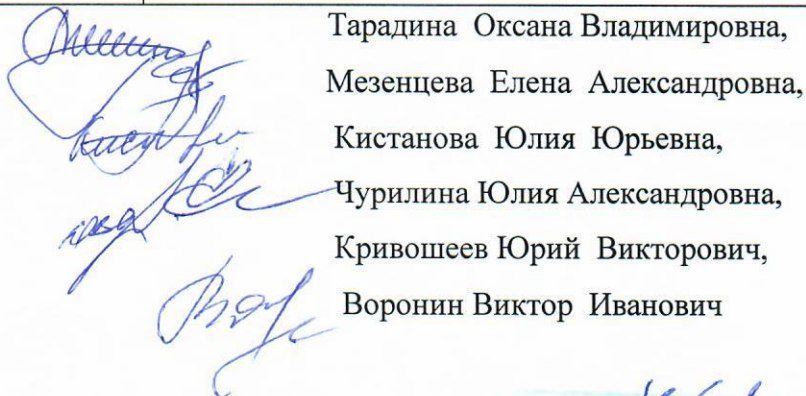 Тарадина Оксана Владимировна,
Мезенцева Елена Александровна,
Кистанова Юлия Юрьевна,
Чурилина Юлия Александровна,
Кривошеев Юрий Викторович,
Воронин Виктор Иванович